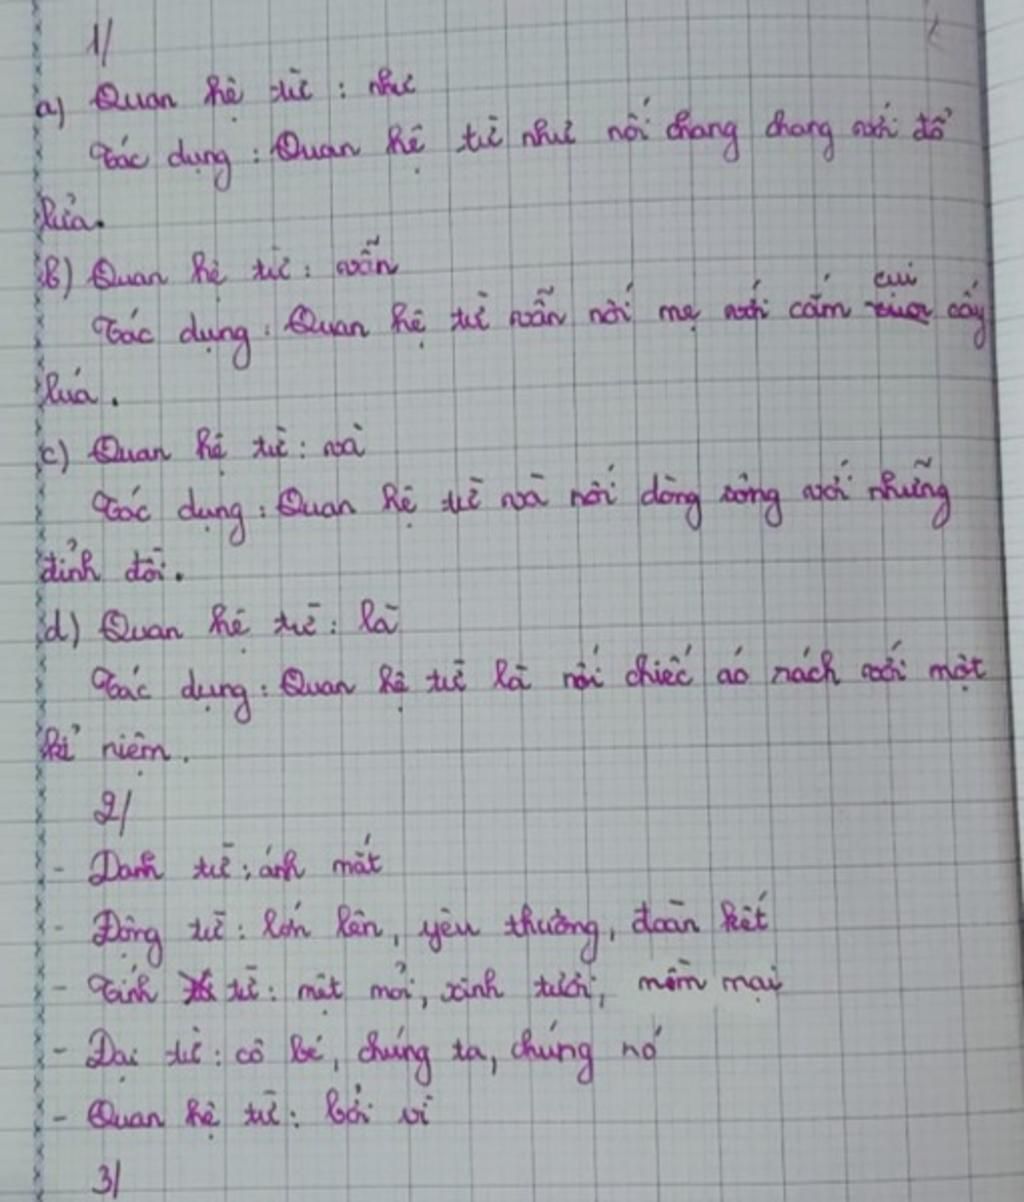 1/
a) Quan hệ từ : như
Tác dụng : Quan hệ từ như nối chang chang với đổ
lửa.
b) Quan hệ từ : vẫn
Tác dụng : Quan hệ từ vẫn nối mẹ với cắm cúi cấy
lúa.
c) Quan hệ từ : và
Tác dụng : Quan hệ từ và nối dòng sông với những
đỉnh đồi.
d) Quan hệ từ : là
Tác dụng : Quan hệ từ là nối chiếc áo rách với một
kỉ niệm.
2/
- Danh từ : ánh mắt
- Động từ : lớn lên, yêu thương, đoàn kết
- Tính từ : mệt mỏi, xinh tươi, mềm mại
- Đại từ : cô bé, chúng ta, chúng nó
- Quan hệ từ : bởi vì
3/